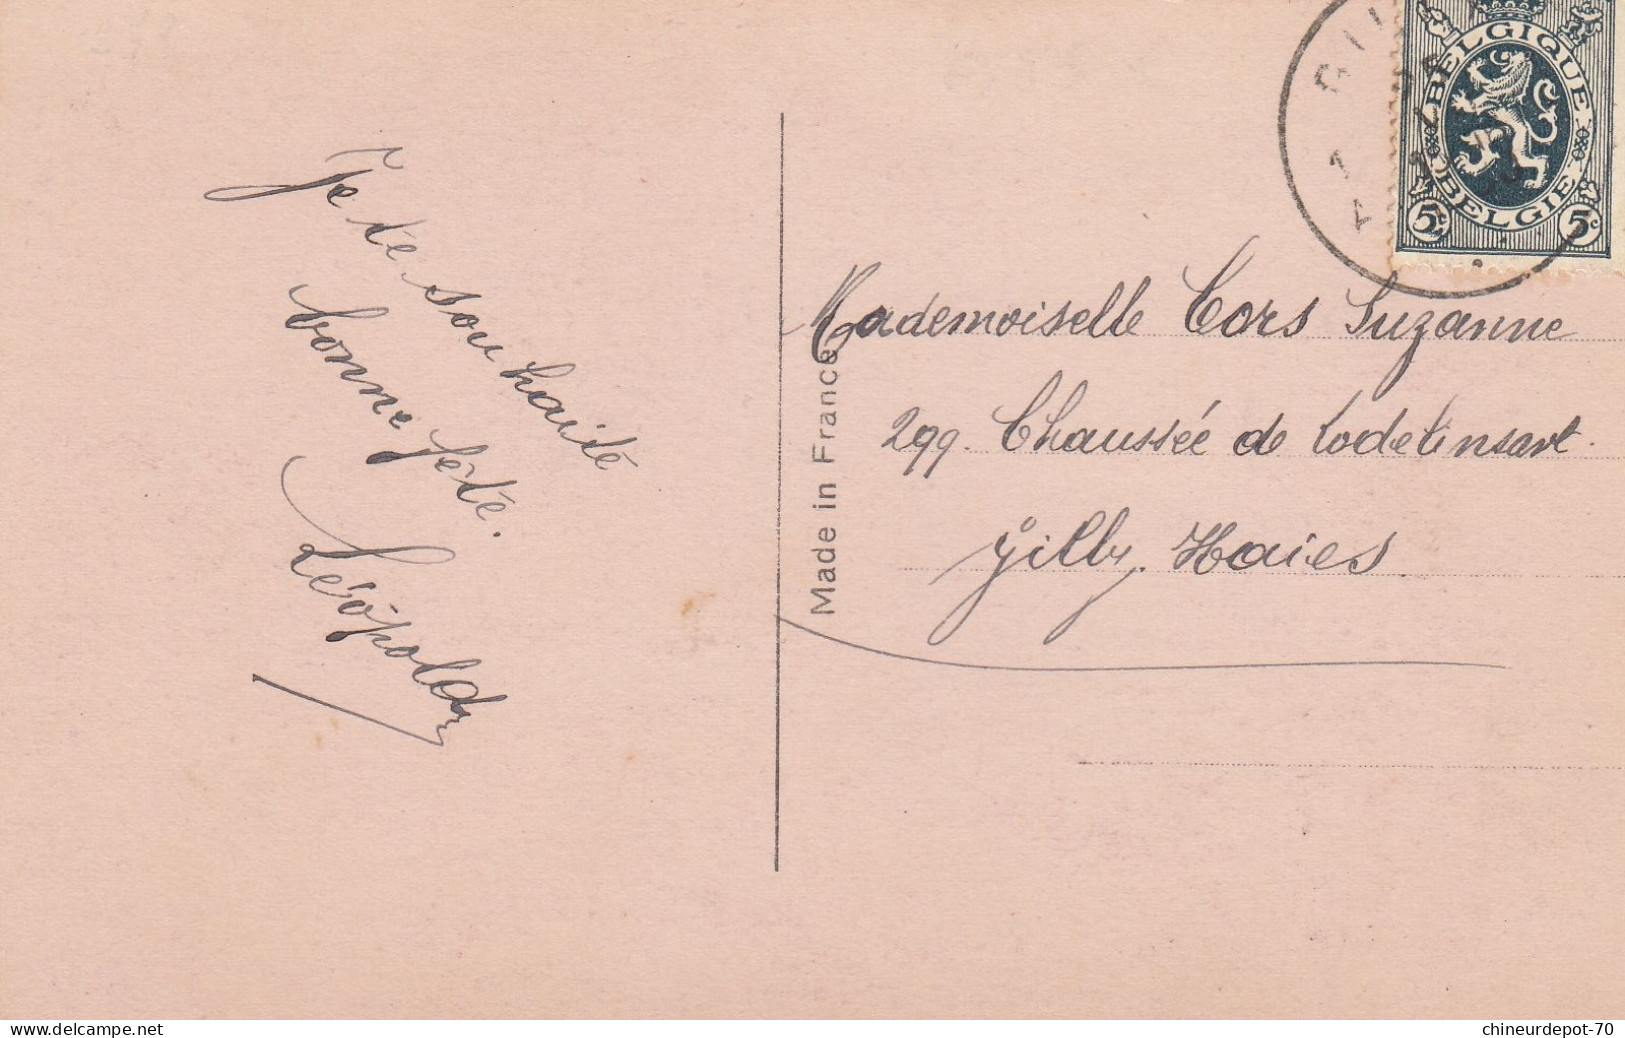 Je te souhaite
bonne fête.
Léopold
Made in France
BELGIQUE
BELGIE
5c 5c
1
A
Mademoiselle Cors Suzanne
299. Chaussée de Lodelinsart.
Gilly. Haies
www.delcampe.net
chineurdepot-70